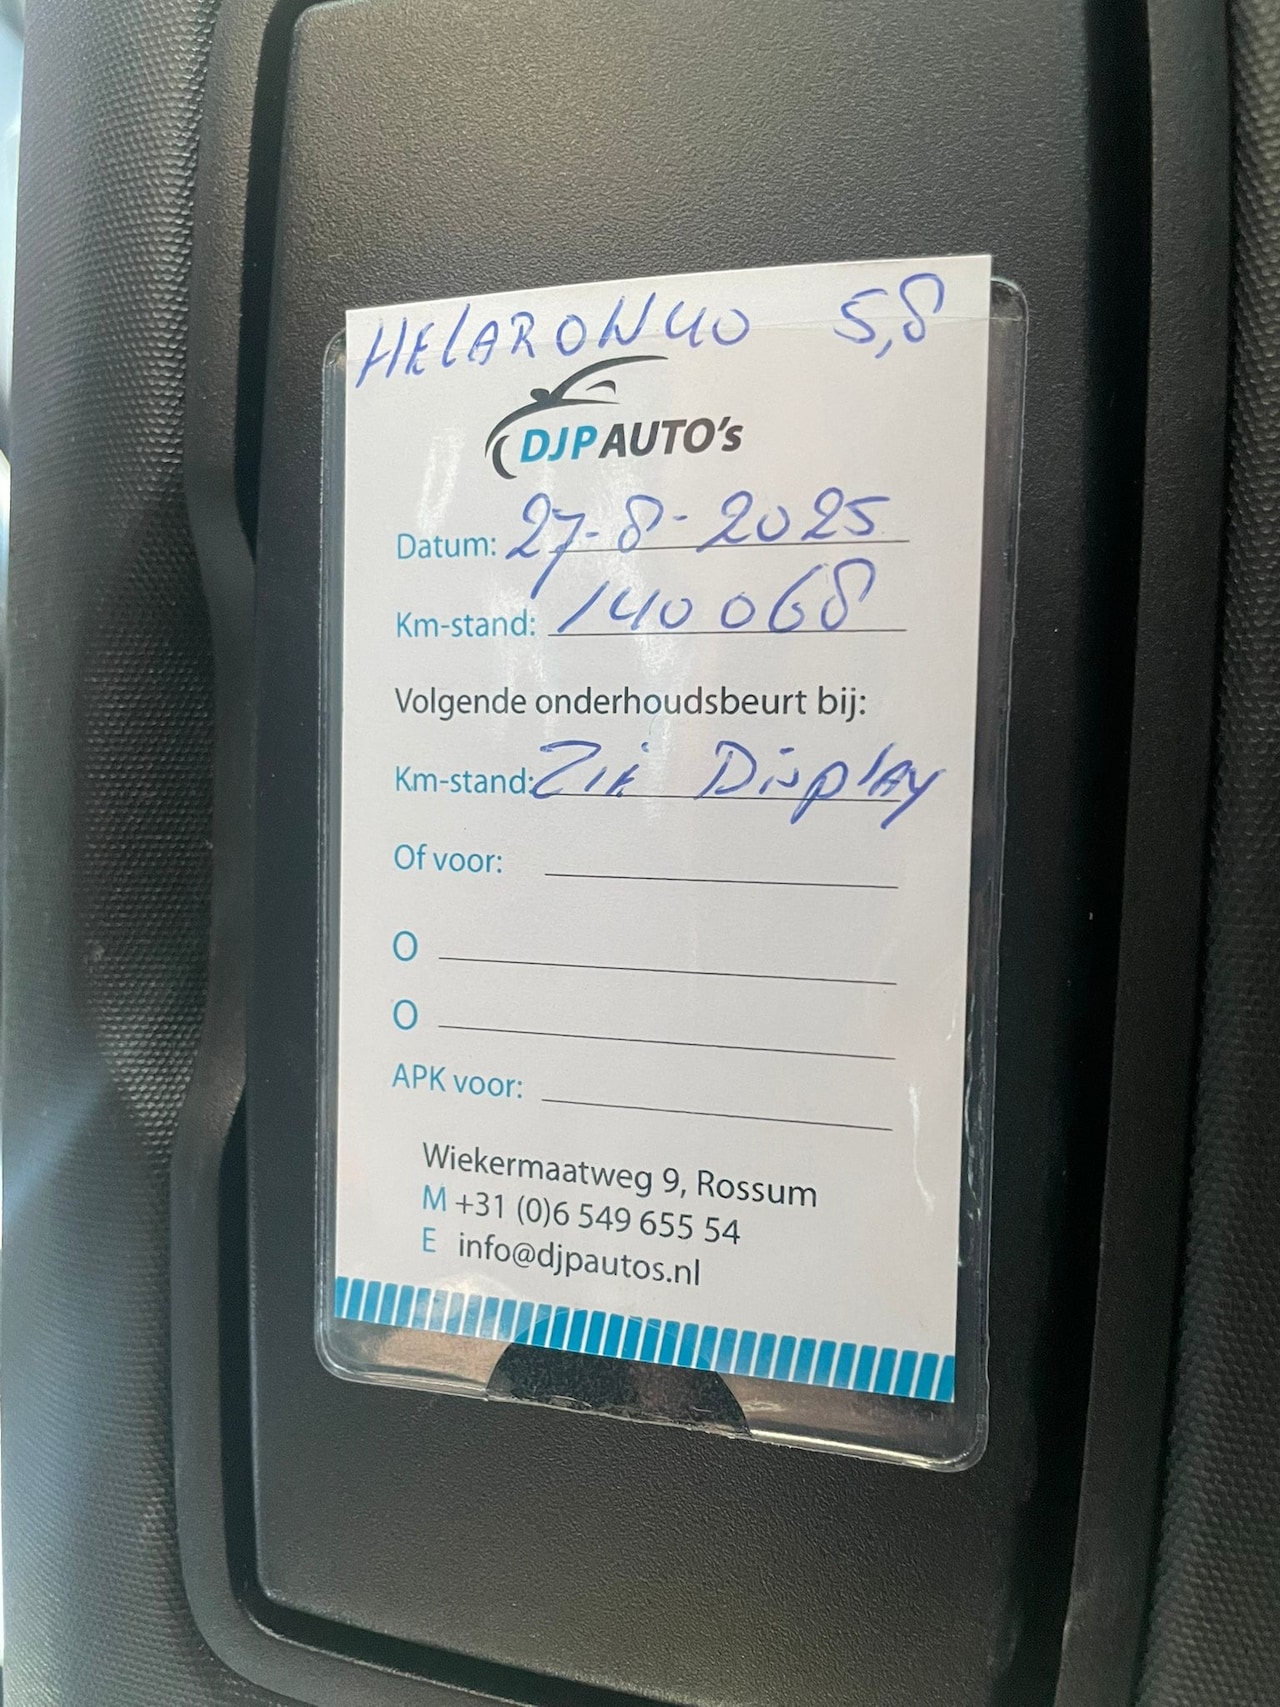 HELAR OW40 5,8
DJP AUTO's
Datum: 27-8-2025
Km-stand: 140068
Volgende onderhoudsbeurt bij:
Km-stand: Zie Display
Of voor:
O
O
APK voor:
Wiekermaatweg 9, Rossum
M +31 (0)6 549 655 54
E info@djpautos.nl